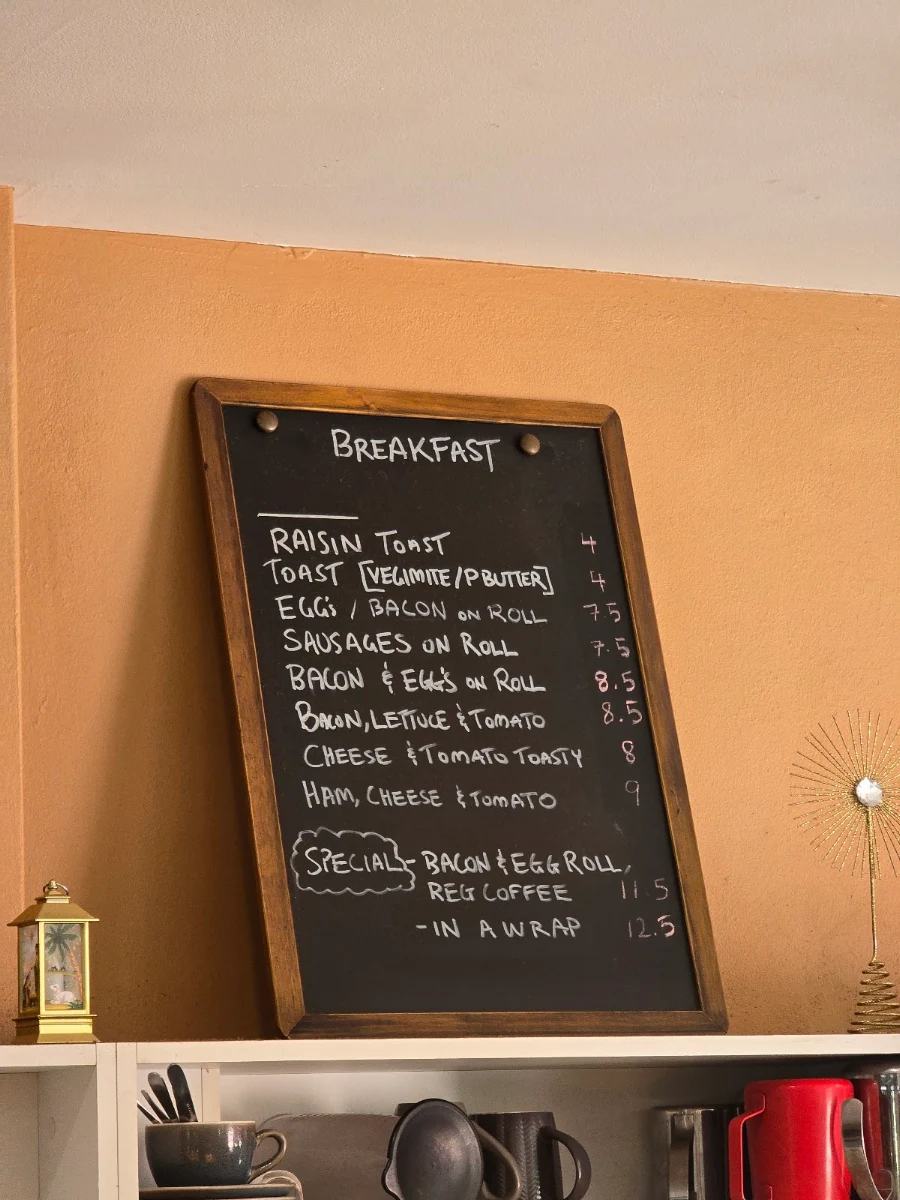 BREAKFAST
RAISIN TOAST 4
TOAST [VEGIMITE/P BUTTER] 4
EGG's / BACON ON ROLL 7.5
SAUSAGES ON ROLL 7.5
BACON & EGG'S ON ROLL 8.5
BACON, LETTUCE & TOMATO 8.5
CHEESE & TOMATO TOASTY 8
HAM, CHEESE & TOMATO 9
SPECIAL - BACON & EGG ROLL,
REG COFFEE 11.5
- IN A WRAP 12.5